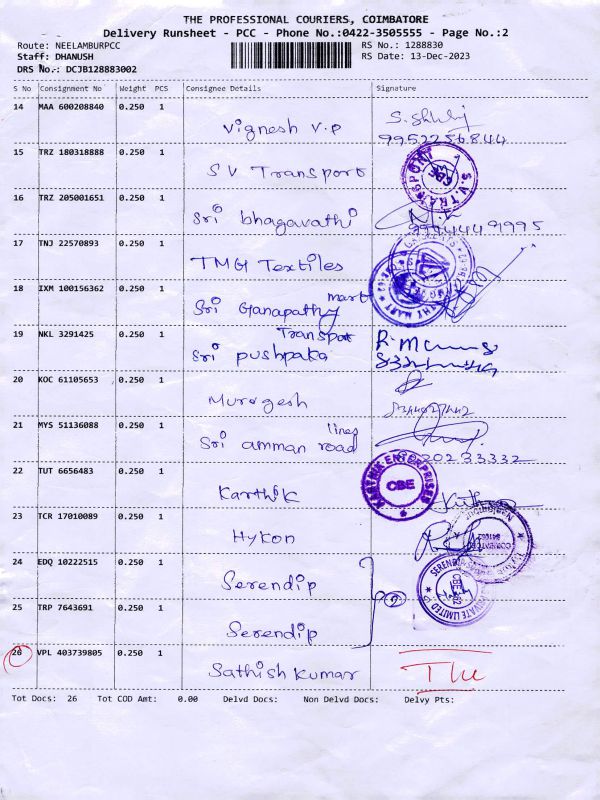 THE PROFESSIONAL COURIERS, COIMBATORE
Delivery Runsheet - PCC - Phone No.:0422-3505555 - Page No.:2
Route: NEELAMBURPCC RS No.: 1288830
Staff: DHANUSH RS Date: 13-Dec-2023
DRS No.: DCJB128883002
S No Consignment No Weight PCS Consignee Details Signature
14 MAA 600208840 0.250 1
Vignesh V.P
9952256844
15 TRZ 180318888 0.250 1
S V Transport
S.V.TRANSPORT CBE
16 TRZ 205001651 0.250 1
Sri bhagavathi
9944491995
17 TNJ 22570893 0.250 1
TMG Textiles
18 IXM 100156362 0.250 1
Sri Ganapathy mart
19 NKL 3291425 0.250 1
Sri pushpaka Transport
20 KOC 61105653 0.250 1
Murogesh
21 MYS 51136088 0.250 1
Sri amman road lines
22 TUT 6656483 0.250 1
Karthik
KARTHIK ENTERPRISES CBE
23 TCR 17010089 0.250 1
Hykon
24 EDQ 10222515 0.250 1
Serendip
25 TRP 7643691 0.250 1
Serendip
26 VPL 403739805 0.250 1
Sathish Kumar
Tot Docs: 26 Tot COD Amt: 0.00 Delvd Docs: Non Delvd Docs: Delvy Pts: